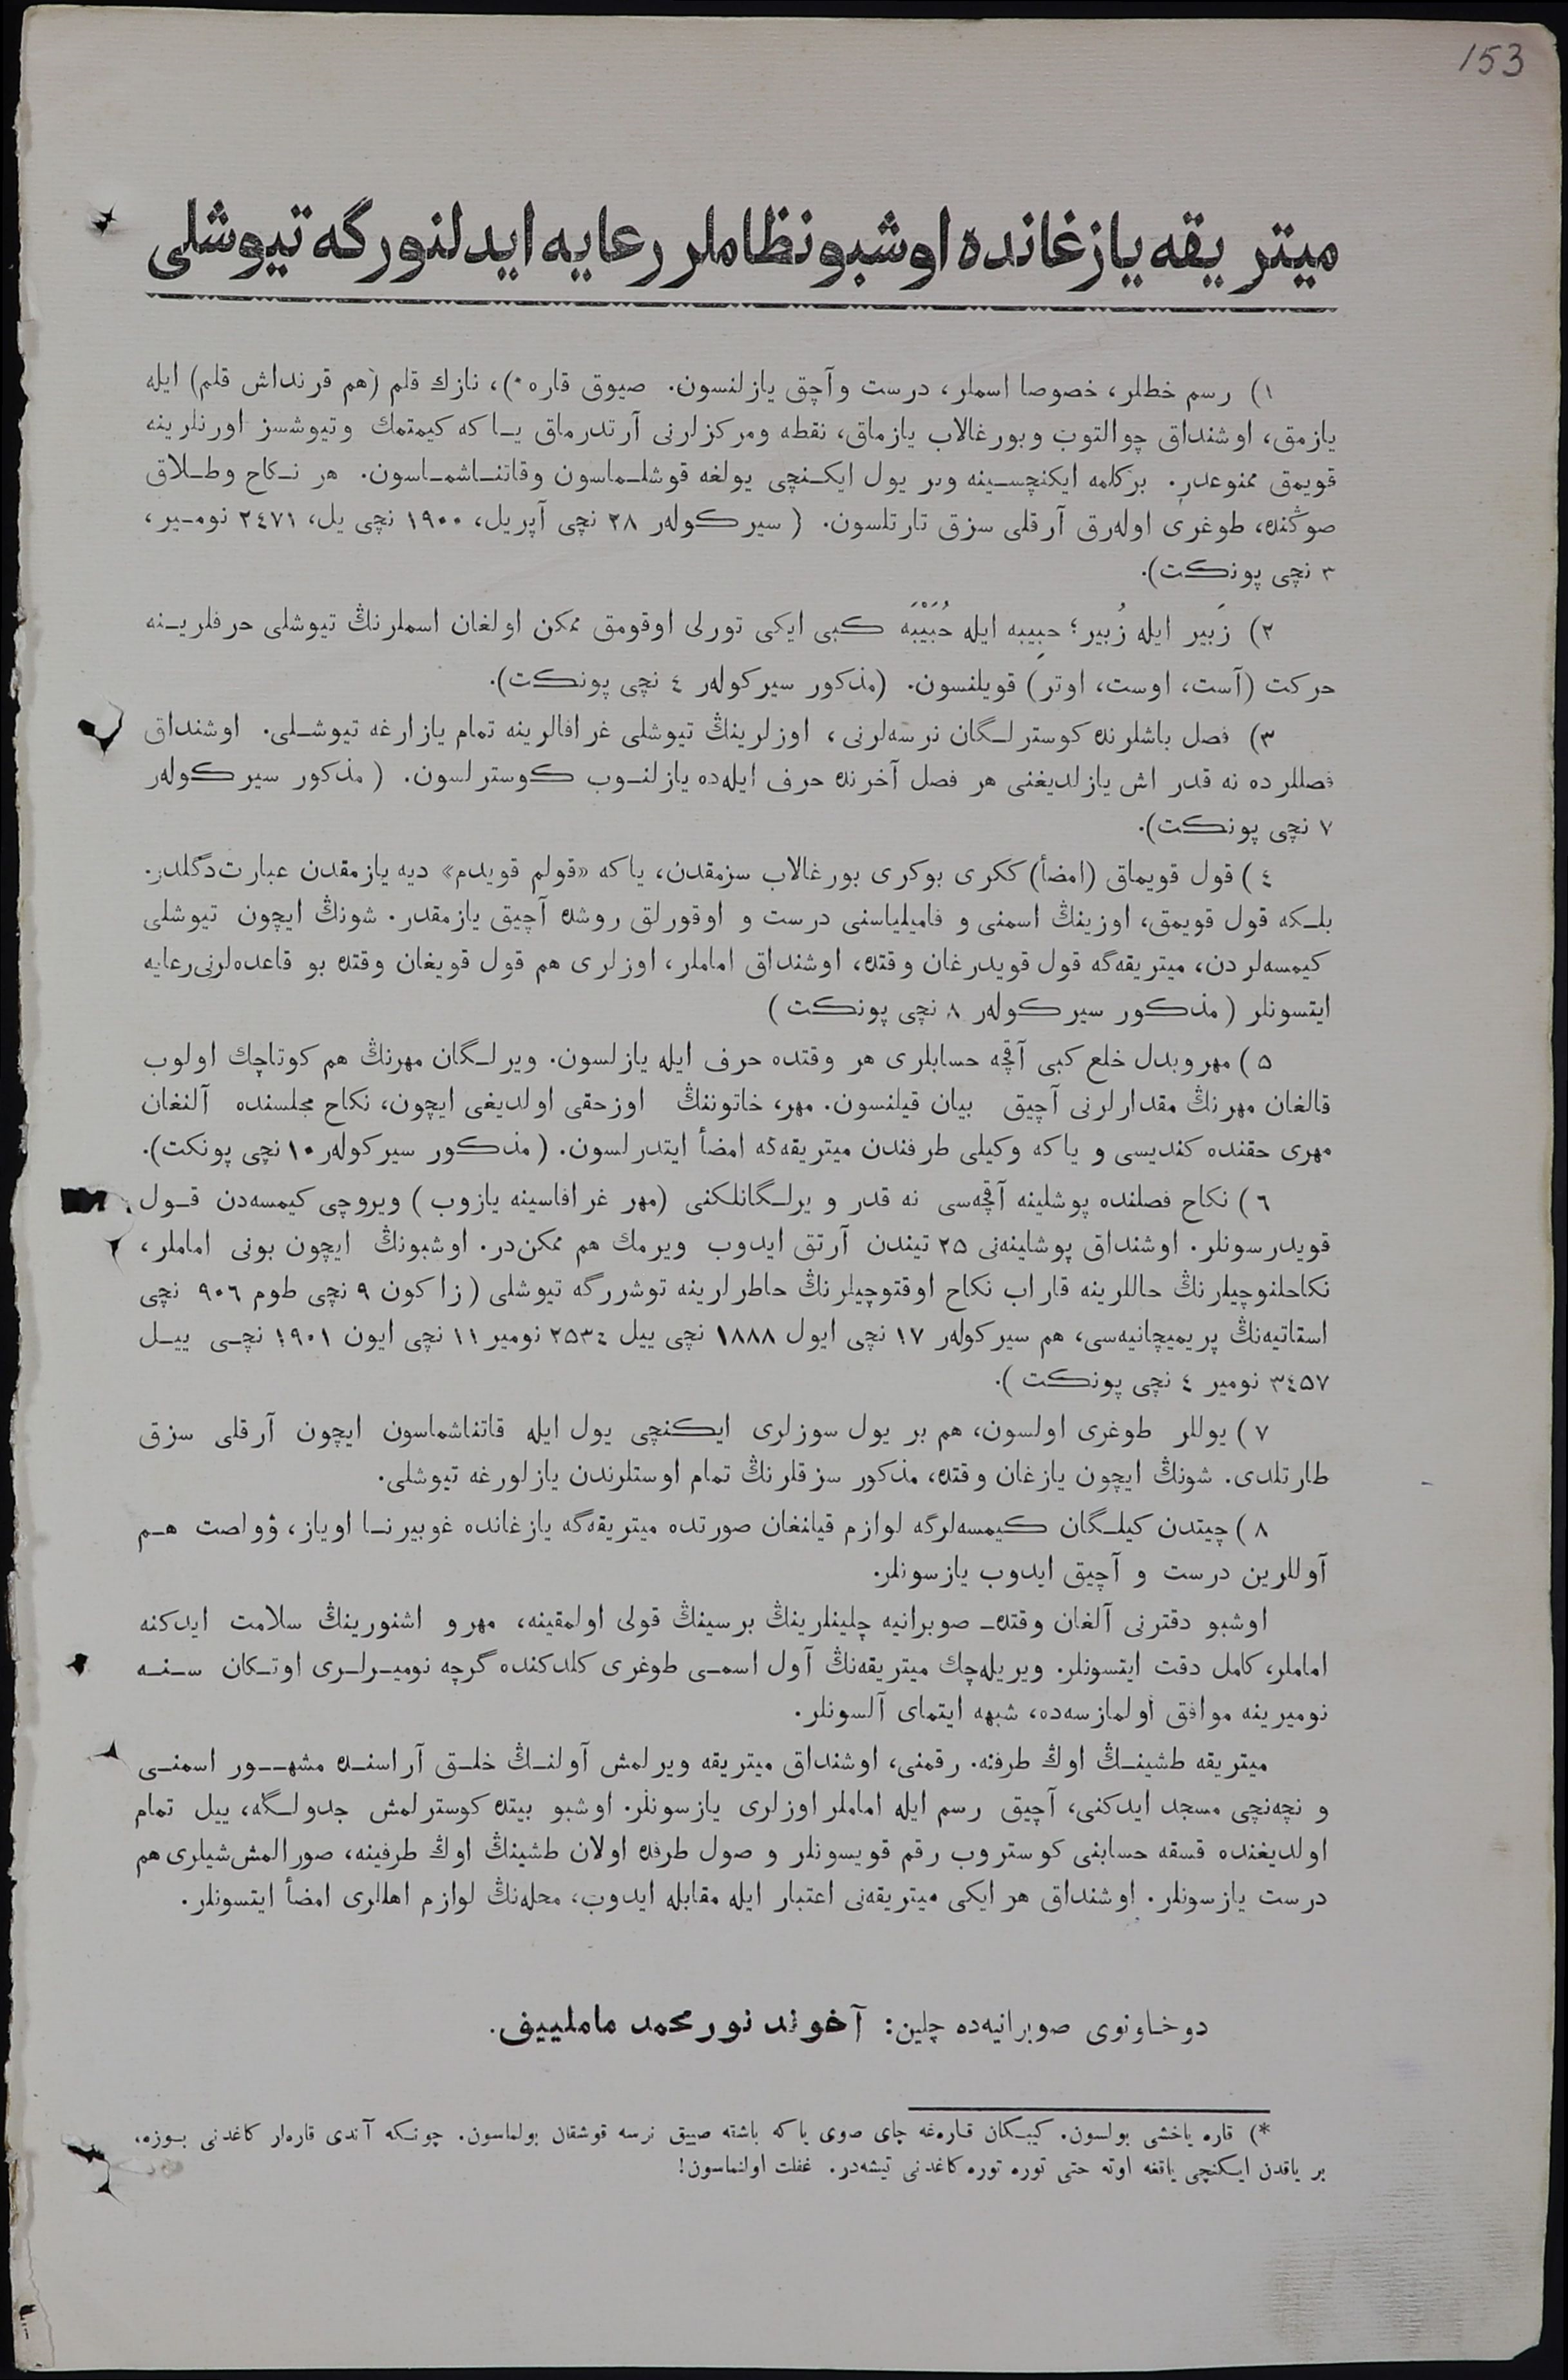 153
میتریقه یازغانده اوشبو نظاملر رعایه ایدلنورگه تیوشلی
١) رسم خطلر، خصوصا اسملر، درست وآچق یازلنسون. صیوق قاره*)، نازك قلم (هم قرنداش قلم) ایله
یازمق، اوشنداق چوالتوب وبورغالاب یازماق، نقطه ومرکزلرنی آرتدرماق یـاکه کیمتمك وتیوشسز اورنلرینه
قویمق ممنوعدر. برکلمه ایکنچسـینه وبر یول ایکـنچی یولغه قوشلـماسون وقاتنـاشمـاسون. هر نـکاح وطـلاق
صوڭنده، طوغری اولەرق آرقلی سزق تارتلسون. (سیرکولەر ٢٨ نچی آپریل، ١٩٠٠ نچی یل، ٢٤٧١ نومـیر،
٣ نچی پونکت).
٢) زَبیر ایله زُبیر؛ حبِیبه ایله حُبَيْبَه کبی ایکی تورلی اوقومق ممکن اولغان اسملرنڭ تیوشلی حرفلریـنه
حرکت (آست، اوست، اوتر) قویلنسون. (مذکور سیرکولەر ٤ نچی پونکت).
٣) فصل باشلرنده کوسترلـگان نرسەلرنی، اوزلرینڭ تیوشلی غرافالرینه تمام یازارغه تیوشـلی. اوشنداق
فصللرده نه قدر اش یازلدیغنی هر فصل آخرنده حرف ایلەده یازلنـوب کوسترلسون. (مذکور سیرکولەر
٧ نچی پونکت).
٤) قول قویماق (امضأ) ککری بوکری بورغالاب سزمقدن، یاکه «قولم قویدم» دیه یازمقدن عبارت‌دگلدر.
بلـکه قول قویمق، اوزینڭ اسمنی و فامیلیاسنی درست و اوقورلق روشده آچیق یازمقدر. شونڭ ایچون تیوشلی
کیمسەلردن، میتریقەگه قول قویدرغان وقتده، اوشنداق اماملر، اوزلری هم قول قویغان وقتده بو قاعدەلرنی‌رعایه
ایتسونلر (مذکور سیرکولەر ٨ نچی پونکت)
٥) مهروبدل خلع کبی آقچه حسابلری هر وقتده حرف ایله یازلسون. ویرلـگان مهرنڭ هم کوتاچك اولوب
قالغان مهرنڭ مقدارلرنی آچیق بیان قیلنسون. مهر، خاتوننڭ اوزحقی اولدیغی ایچون، نکاح مجلسنده آلنغان
مهری حقنده کندیسی و یاکه وکیلی طرفندن میتریقەگه امضأ ایتدرلسون. (مذکور سیرکولەر ١٠ نچی پونکت).
٦) نکاح فصلنده پوشلینه آقچەسی نه قدر ویرلـگانلکنی (مهر غرافاسینه یازوب) ویروچی کیمسەدن قـول
قویدرسونلر. اوشنداق پوشلینەنی ٢٥ تیندن آرتق ایدوب ویرمك هم ممکن‌در. اوشبونڭ ایچون بونی اماملر،
نکاحلنوچیلرنڭ حاللرینه قاراب نکاح اوقتوچیلرنڭ حاطرلرینه توشررگه تیوشلی (زاکون ٩ نچی طوم ٩٠٦ نچی
استاتیەنڭ پریمیچانیەسی، هم سیرکولەر ١٧ نچی ایول ١٨٨٨ نچی ییل ٢٥٣٤ نومیر ١١ نچی ایون ١٩٠١ نچـی ییـل
٣٤٥٧ نومیر ٤ نچی پونکت).
٧) یوللر طوغری اولسون، هم بر یول سوزلری ایکنچی یول ایله قاتناشماسون ایچون آرقلی سزق
طارتلدی. شونڭ ایچون یازغان وقتده، مذکور سزقلرنڭ تمام اوستلرندن یازلورغه تیوشلی.
٨) چیتدن کیلـگان کیمسەلرگه لوازم قیلنغان صورتده میتریقەگه یازغانده غوبیرنـا اویاز، ۋولصت هـم
آوللرین درست و آچیق ایدوب یازسونلر.
اوشبو دفترنی آلغان وقتده صوبرانیه چلینلرینڭ برسینڭ قولی اولمقینه، مهر و اشنورینڭ سلامت ایدکنه
اماملر، کامل دقت ایتسونلر. ویریلەچك میتریقەنڭ آول اسمـی طوغری کلدکنده گرچه نومیـرلـری اوتـکان سـنـه
نومیرینه موافق اولمازسەده، شبهه ایتمای آلسونلر.
میتریقه طشینـڭ اوڭ طرفنه. رقمنی، اوشنداق میتریقه ویرلمش آولنـڭ خلـق آراسنـده مشهــور اسمنـی
و نچەنچی مسجد ایدکنی، آچیق رسم ایله اماملر اوزلری یازسونلر. اوشبو بیتده کوسترلمش جدولـگه، ییل تمام
اولدیغنده قسقه حسابنی کوستروب رقم قویسونلر و صول طرفده اولان طشینڭ اوڭ طرفینه، صورالمش‌شیلری هم
درست یازسونلر. اوشنداق هر ایکی میتریقەنی اعتبار ایله مقابله ایدوب، محلەنڭ لوازم اهللری امضأ ایتسونلر.
دوخـاونوی صوبرانیەده چلین: آخوند نورمحمد ماملییف.
*) قاره یاخشی بولسون. کیبـکان قـارەغه چای صوی یاکه باشته صییق نرسه قوشقان بولماسون. چونـکه آندی قارەلر کاغدنی بـوزه،
بر یاقدن ایـکنچی یاقغه اوته حتی توره توره کاغدنی تیشەدر. غفلت اولنماسون!